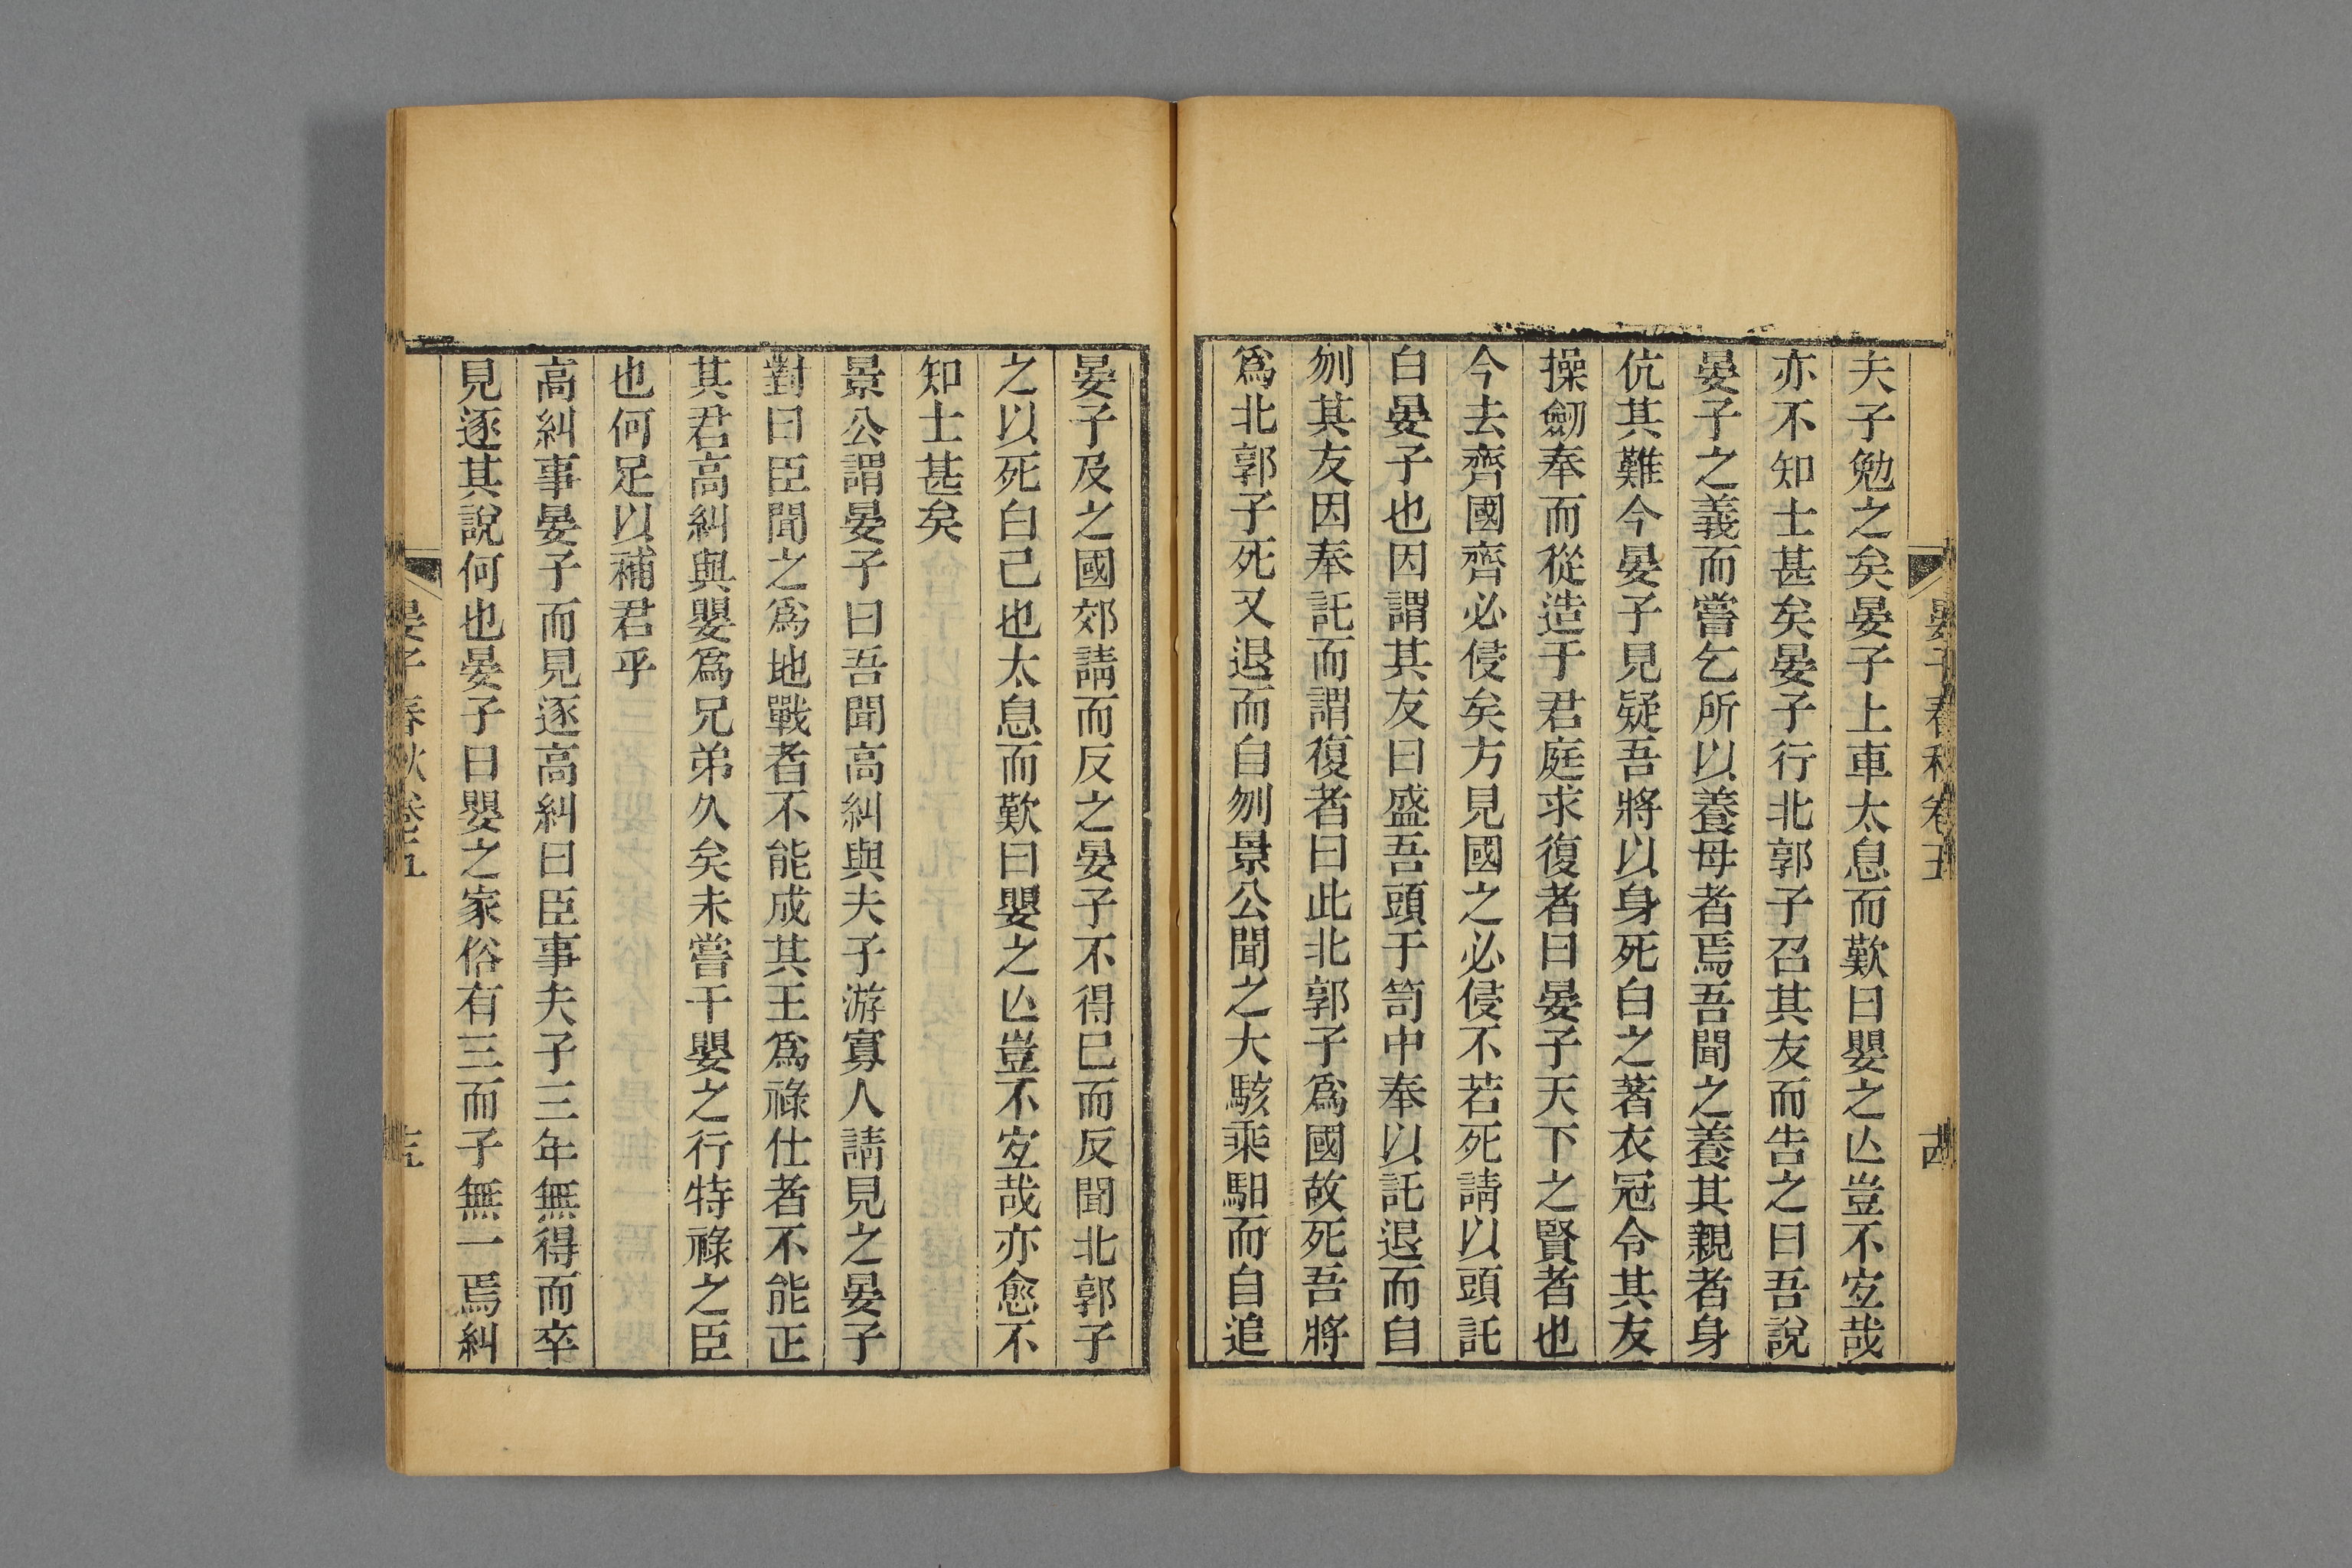 晏子春秋卷五
夫子勉之矣晏子上車太息而歎曰嬰之亾豈不宐哉
亦不知士甚矣晏子行北郭子召其友而告之曰吾說
晏子之義而嘗乞所以養母者焉吾聞之養其親者身
伉其難今晏子見疑吾將以身死白之著衣冠令其友
操劒奉而從造于君庭求復者曰晏子天下之賢者也
今去齊國齊必侵矣方見國之必侵不若死請以頭託
白晏子也因謂其友曰盛吾頭于笥中奉以託退而自
刎其友因奉託而謂復者曰此北郭子爲國故死吾將
爲北郭子死又退而自刎景公聞之大駭乘馹而自追
晏子及之國郊請而反之晏子不得已而反聞北郭子
之以死白己也太息而歎曰嬰之亾豈不宐哉亦愈不
知士甚矣
景公謂晏子曰吾聞高糾與夫子游寡人請見之晏子
對曰臣聞之爲地戰者不能成其王爲祿仕者不能正
其君高糾與嬰爲兄弟久矣未嘗干嬰之行特祿之臣
也何足以補君乎
高糾事晏子而見逐高糾曰臣事夫子三年無得而卒
見逐其說何也晏子曰嬰之家俗有三而子無一焉糾
晏子春秋卷五